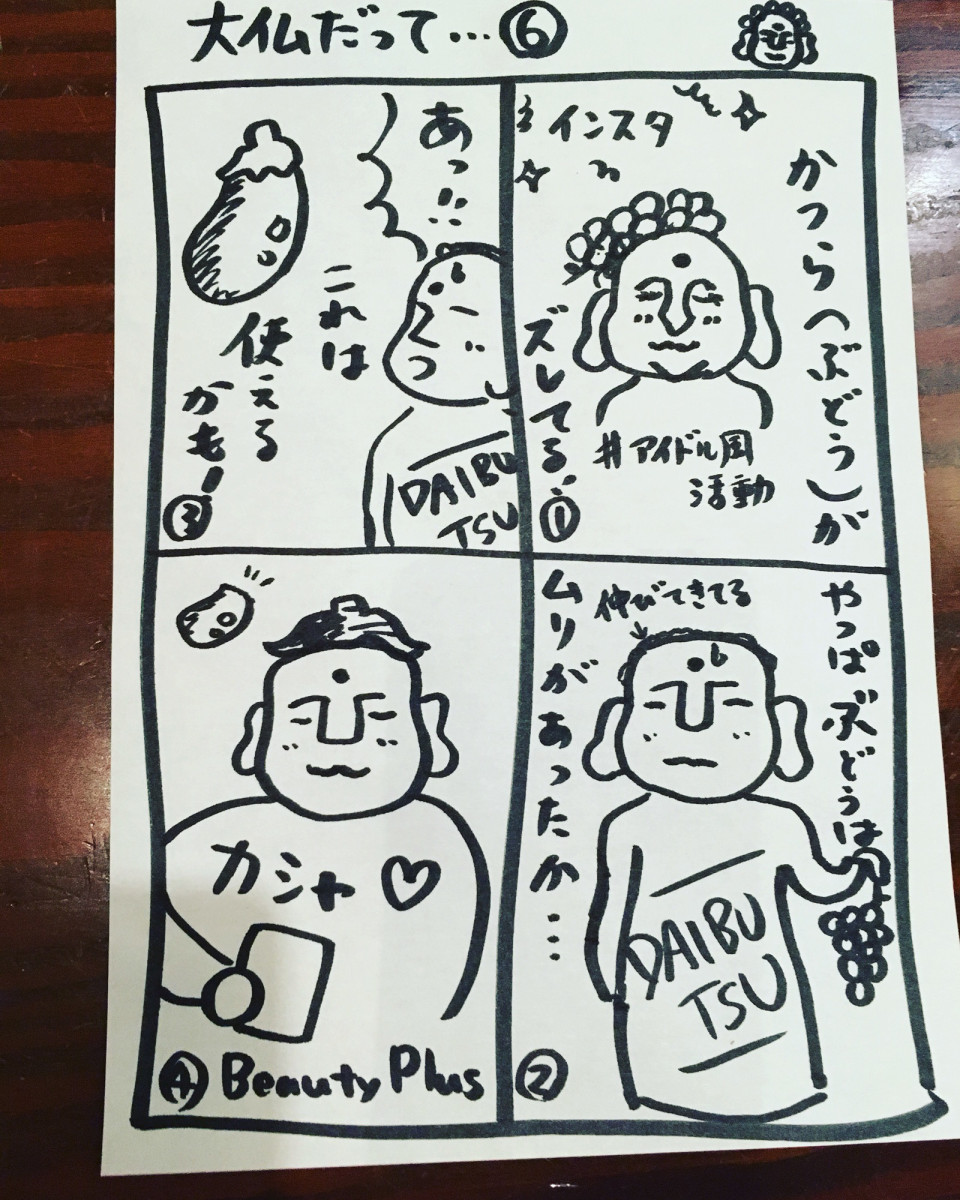 大仏だって…⑥
インスタ
かつら(ぶどう)が
ズレてる!
#アイドル風
活動
①
やっぱぶどうは
伸びてきてる
ムリがあったか…
DAIBU
TSU
②
あっ!!
これは
使える
かも!
DAIBU
TSU
③
カシャ♡
④ Beauty Plus